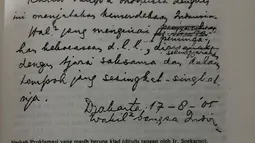 ini menjatakan kemerdekaan Indonesia.
Hal² jang mengenai
kan kekoeasaan d.l.l., diselenggarakan
dengan tjara saksama dan dalam
tempoh jang sesingkat-singkat
nja.
Djakarta, 17-8-'05
Wakil² bangsa Indon
Naskah Proklamasi yang masih berupa klad (ditulis tangan oleh Ir. Soekarno).